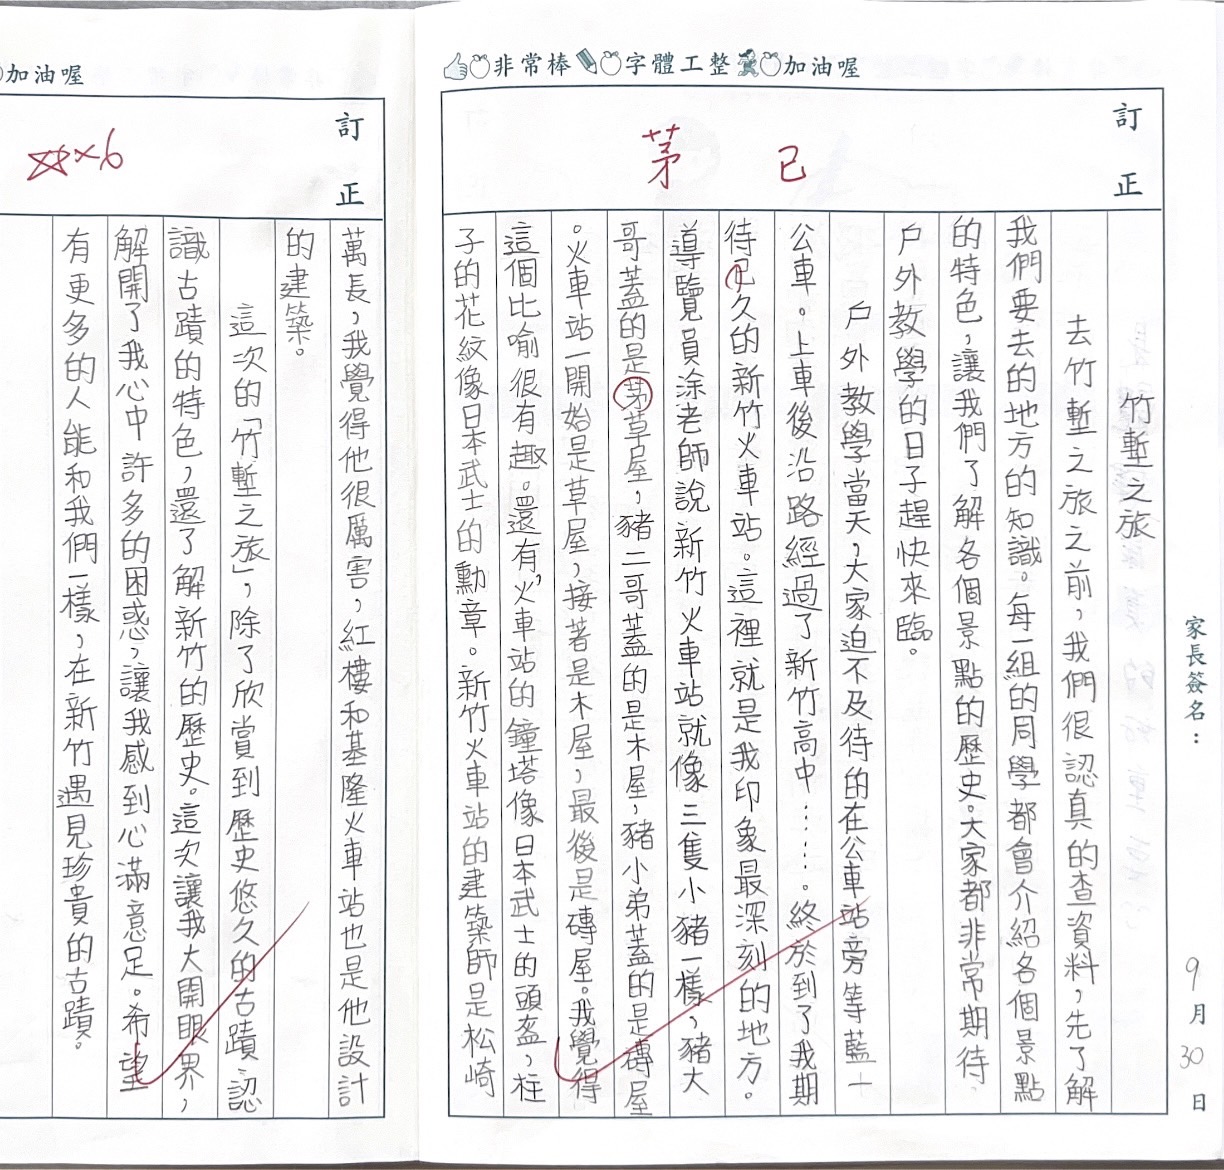 非常棒 字體工整 加油喔
訂正
茅 已
竹塹之旅
去竹塹之旅之前，我們很認真的查資料，先了解
我們要去的地方的知識。每一組的同學都會介紹各個景點
的特色，讓我們了解各個景點的歷史。大家都非常期待
戶外教學的日子趕快來臨。
戶外教學當天，大家迫不及待的在公車站旁等藍一
公車。上車後沿路經過了新竹高中……。終於到了我期
待已久的新竹火車站。這裡就是我印象最深刻的地方。
導覽員涂老師說新竹火車站就像三隻小豬一樣，豬大
哥蓋的是茅草屋，豬二哥蓋的是木屋，豬小弟蓋的是磚屋
。火車站一開始是草屋，接著是木屋，最後是磚屋。我覺得
這個比喻很有趣。還有，火車站的鐘塔像日本武士的頭盔，柱
子的花紋像日本武士的勳章。新竹火車站的建築師是松崎
家長簽名：
9月30日
加油喔
訂正
☆×6
萬長，我覺得他很厲害，紅樓和基隆火車站也是他設計
的建築。
這次的「竹塹之旅」，除了欣賞到歷史悠久的古蹟、認
識古蹟的特色，還了解新竹的歷史。這次讓我大開眼界，
解開了我心中許多的困惑，讓我感到心滿意足。希望
有更多的人能和我們一樣，在新竹遇見珍貴的古蹟。